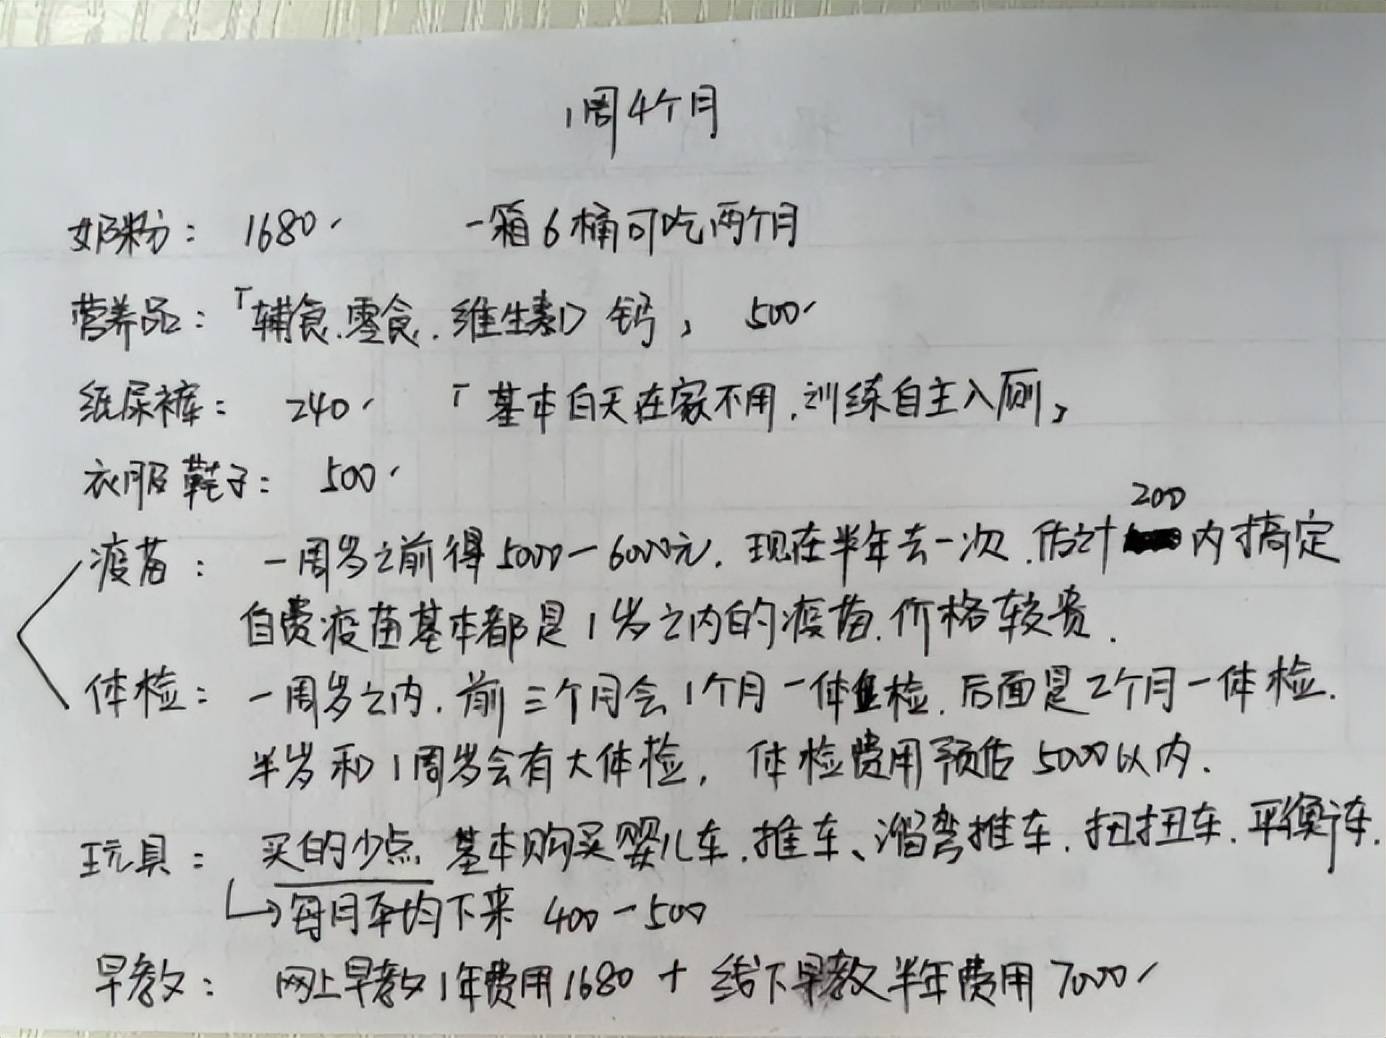 1周4个月
奶粉： 1680. 一箱6桶可吃两个月
营养品：「辅食.零食.维生素D 钙」 500.
纸尿裤： 240. 「基本白天在家不用.训练自主入厕」
衣服鞋子： 500.
200
疫苗： 一周岁之前得5000-6000元. 现在半年去一次.估计 内搞定
自费疫苗基本都是1岁之内的疫苗.价格较贵.
体检： 一周岁之内.前三个月会1个月一体检.后面是2个月一体检.
半岁和1周岁会有大体检, 体检费用预估5000以内.
玩具： 买的少点 基本购买婴儿车.推车、溜弯推车.扭扭车.平衡车.
↳每月平均下来 400-500
早教： 网上早教1年费用1680 + 线下早教半年费用7000.